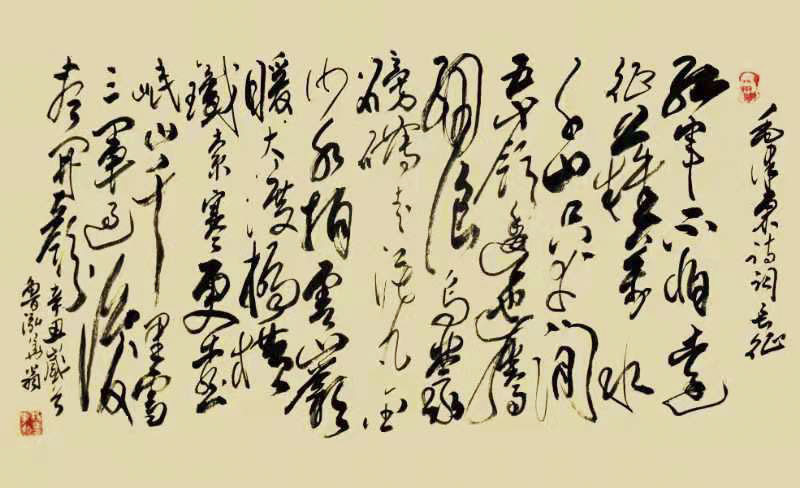 毛泽东诗词长征
红军不怕远
征难萬水
千山只等闲
五岭逶迤腾
细浪乌蒙
磅礴走泥丸金
沙水拍雲巖
暖大渡橋横
鐵索寒更喜
岷山千里雪
三軍过后
尽开颜
辛丑歲